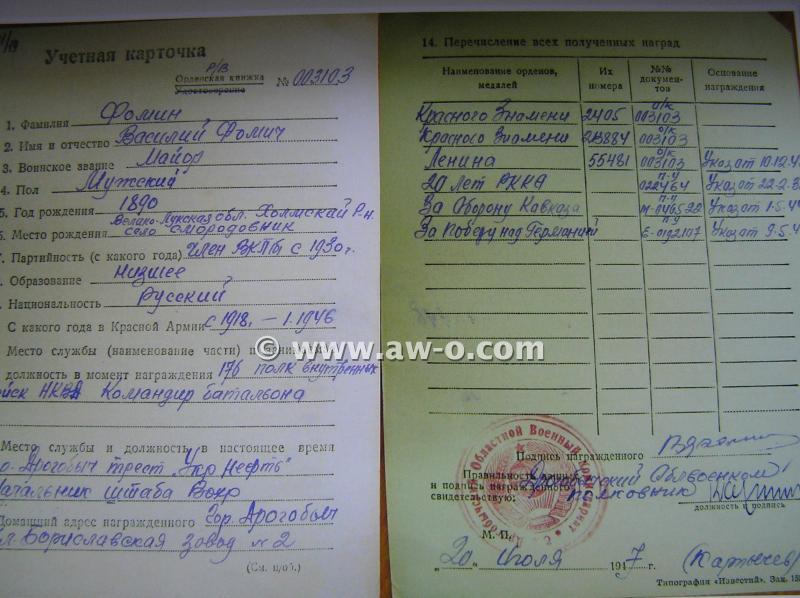 Учетная карточка
Р/В
Орденская книжка № 003103
Удостоверение
1. Фамилия Фомин
2. Имя и отчество Василий Фомич
3. Воинское звание Майор
4. Пол Мужский
5. Год рождения 1890
Велико-Лукская обл. Холмский Р-н
6. Место рождения село Смородовник
Партийность (с какого года) Член ВКПб с 1930 г.
Образование Низшее
Национальность Русский
С какого года в Красной Армии с 1918 г. – 1.1946
Место службы (наименование части) и занимаемая
должность в момент награждения 176 полк внутренных
войск НКВД Командир батальона
Место службы и должность в настоящее время
Дрогобыч трест „Укрнефть"
Начальник штаба
Домашний адрес награжденного гор. Дрогобыч
ул. Бориславская завод № 2
(См. н/об.)
14. Перечисление всех полученных наград
Наименование орденов, медалей Их номера №№ документов Основание награждения
Красного Знамени 2405 о/к 003103
Красного Знамени о/к 003103
Ленина 55481 о/к 003103 Указ от 10.12.4
20 лет РККА п-у 022464 Указ от 22-2.3
За Оборону Кавказа п-у Указ от 1.5.4
За Победу над Германией п-у Е-0192107 Указ от 9.5.4
Подпись награжденного
Правильность данных
и подпись награжденного Облвоенком
свидетельствую: полковник
должность и подпись
М. П.
„20" Июля 1947 г. (Картычев)
Типография «Известий». Зак. 15
© www.aw-o.com